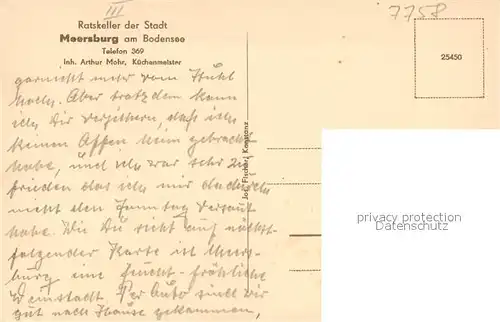 III
7758
Ratskeller der Stadt
Meersburg am Bodensee
Telefon 369
Inh. Arthur Mohr, Küchenmeister
25450
garnicht mehr vom Stuhl
hoch. Aber trotzdem kann
ich Dir versichern, daß ich
keinen Affen heim gebracht
habe, und ich war sehr zu
frieden das ich mir dadurch
nicht den Sonntag versaut
habe. Wie Du siehst auf nächst-
folgender Karte ist Meers-
burg eine feucht-fröhliche
Weinstadt. Per Auto sind wir
gut nach Hause gekommen,
Jos. Fischer, Konstanz
privacy protection
Datenschutz